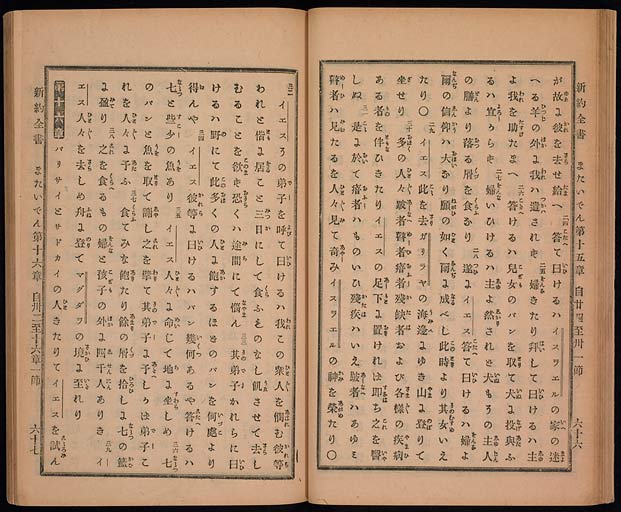 新約全書 またいでん第十五章 自廿四至卅一節 六十六
が故よ彼を去せ給へ 二四 答て曰けるハイスラエルの家の迷
へる羊の外ハ我ハ遣されず 二五 婦きたり拜して曰けるハ主
よ我を助たまへ 二六 答けるハ兒女のパンを取て犬よ投與ふ
るハ宜からず 二七 婦いひけるハ主よ然されど犬もその主人
の膳より落る屑を食ふなり 二八 遂よイエス答て曰けるハ婦よ
爾の信仰ハ大なり願の如く爾よ成べし此時より其女いえ
たり〇 二九 イエス此を去ガリラヤの海邊よゆき山よ登りて
坐せり 三十 多の人々跛者瞽者瘖者殘缺者および各樣の疾病
ある者を伴ひきたりイエスの足下よ置ければ即ち之を醫
しぬ 三一 是よ於て瘖者ハものいひ殘疾ハいえ跛者ハあゆミ
瞽者ハ見たるを人々見て奇みイスラエルの神を榮たり〇
三二 イエスその弟子を呼て曰けるハ我この衆人を憫む彼等
われと偕よ居こと三日にして食ふものなし飢させて去し
むることを欲ず恐くハ途間にて惱ん 三三 其弟子かれらに曰
けるハ野にて此多くの人よ飽するほどのパンを何處より
得んや 三四 イエス彼等よ曰けるハパン幾何あるや答けるハ
七と些少の魚あり 三五 イエス人々よ命じて地よ坐しめ 三六 七
のパンと魚を取て謝し之を擘て其弟子よ予しかば弟子こ
れを人々よ予ふ 三七 食てみな飽たり餘の屑を拾しよ七の籃
よ盈り 三八 之を食るもの婦と孩子の外よ四千人ありき 三九 イ
エス人々を去しめ舟よ登てマグダラの境よ至れり
第十六章 パリサイとサドカイの人きたりてイエスを試ん
新約全書 またいでん第十六章 自卅二至十六章一節 六十七